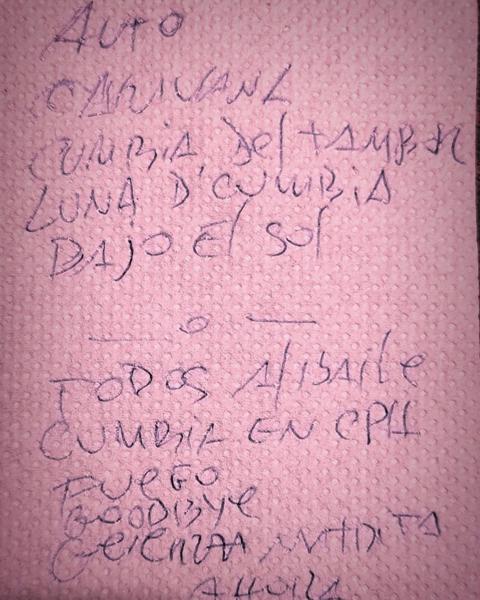 AUTO
CARNAVAL
CUMBIA DEL TAMBOR
LUNA D'CUMBIA
BAJO El SOl
— o —
TODOS Al BAILE
CUMBIA EN CPH
FUEGO
GOODBYE
MALDITA